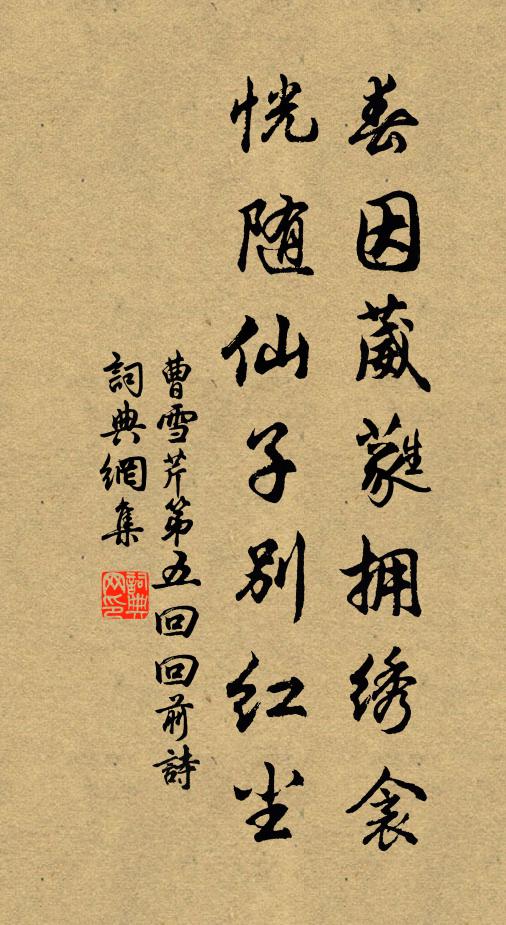 春因葳蕤拥绣衾
恍随仙子别红尘
曹雪芹第五回回前詩
詞典網集
詞典
网印